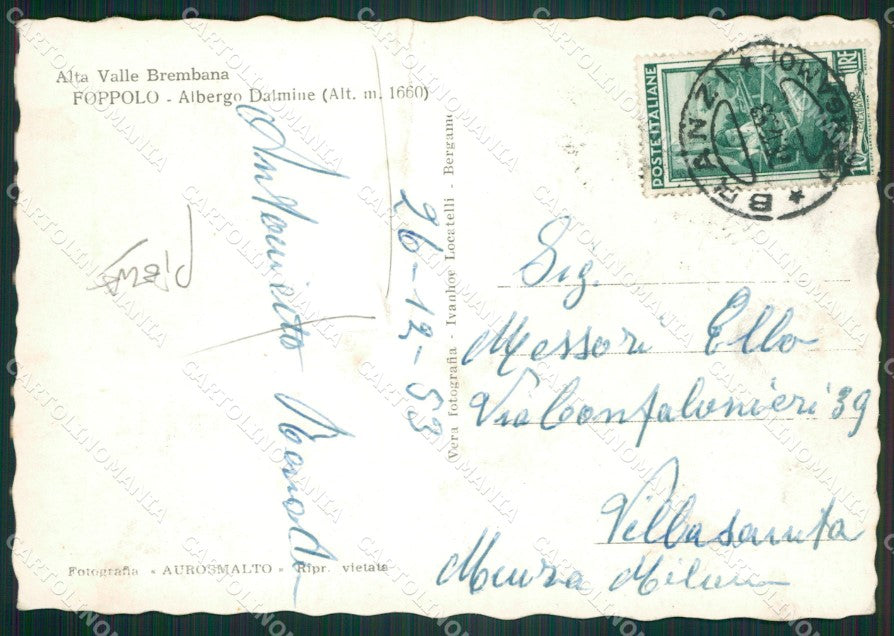 Alta Valle Brembana
FOPPOLO - Albergo Dalmine (Alt. m. 1660)
POSTE ITALIANE
LIRE
10
BRANZI
Antonietto
26-12-53
Vera fotografia - Ivanhoe Locatelli - Bergamo
Sig.
Messori Ello
Via Confalonieri 39
Villasanta
Monza Milano
Fotografia « AUROSMALTO » Ripr. vietata
CARTOLINOMANIA